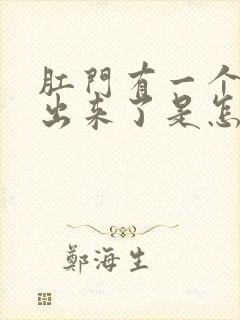 肛門有一个
出来了是怎
鄭海生